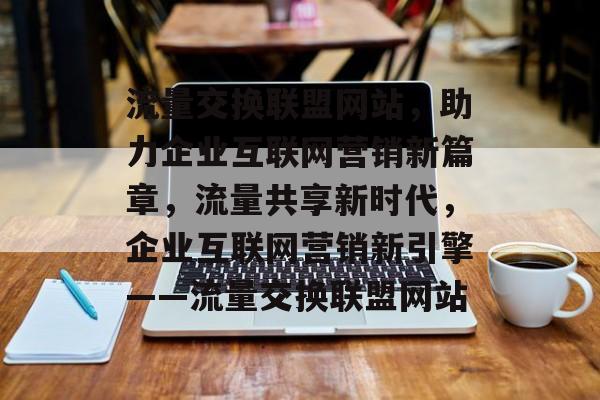 流量交换联盟网站，助
力企业互联网营销新篇
章，流量共享新时代，
企业互联网营销新引擎
——流量交换联盟网站